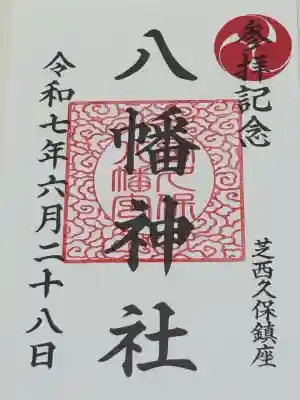 参拝記念
芝西久保鎮座
八幡神社
令和七年六月二十八日